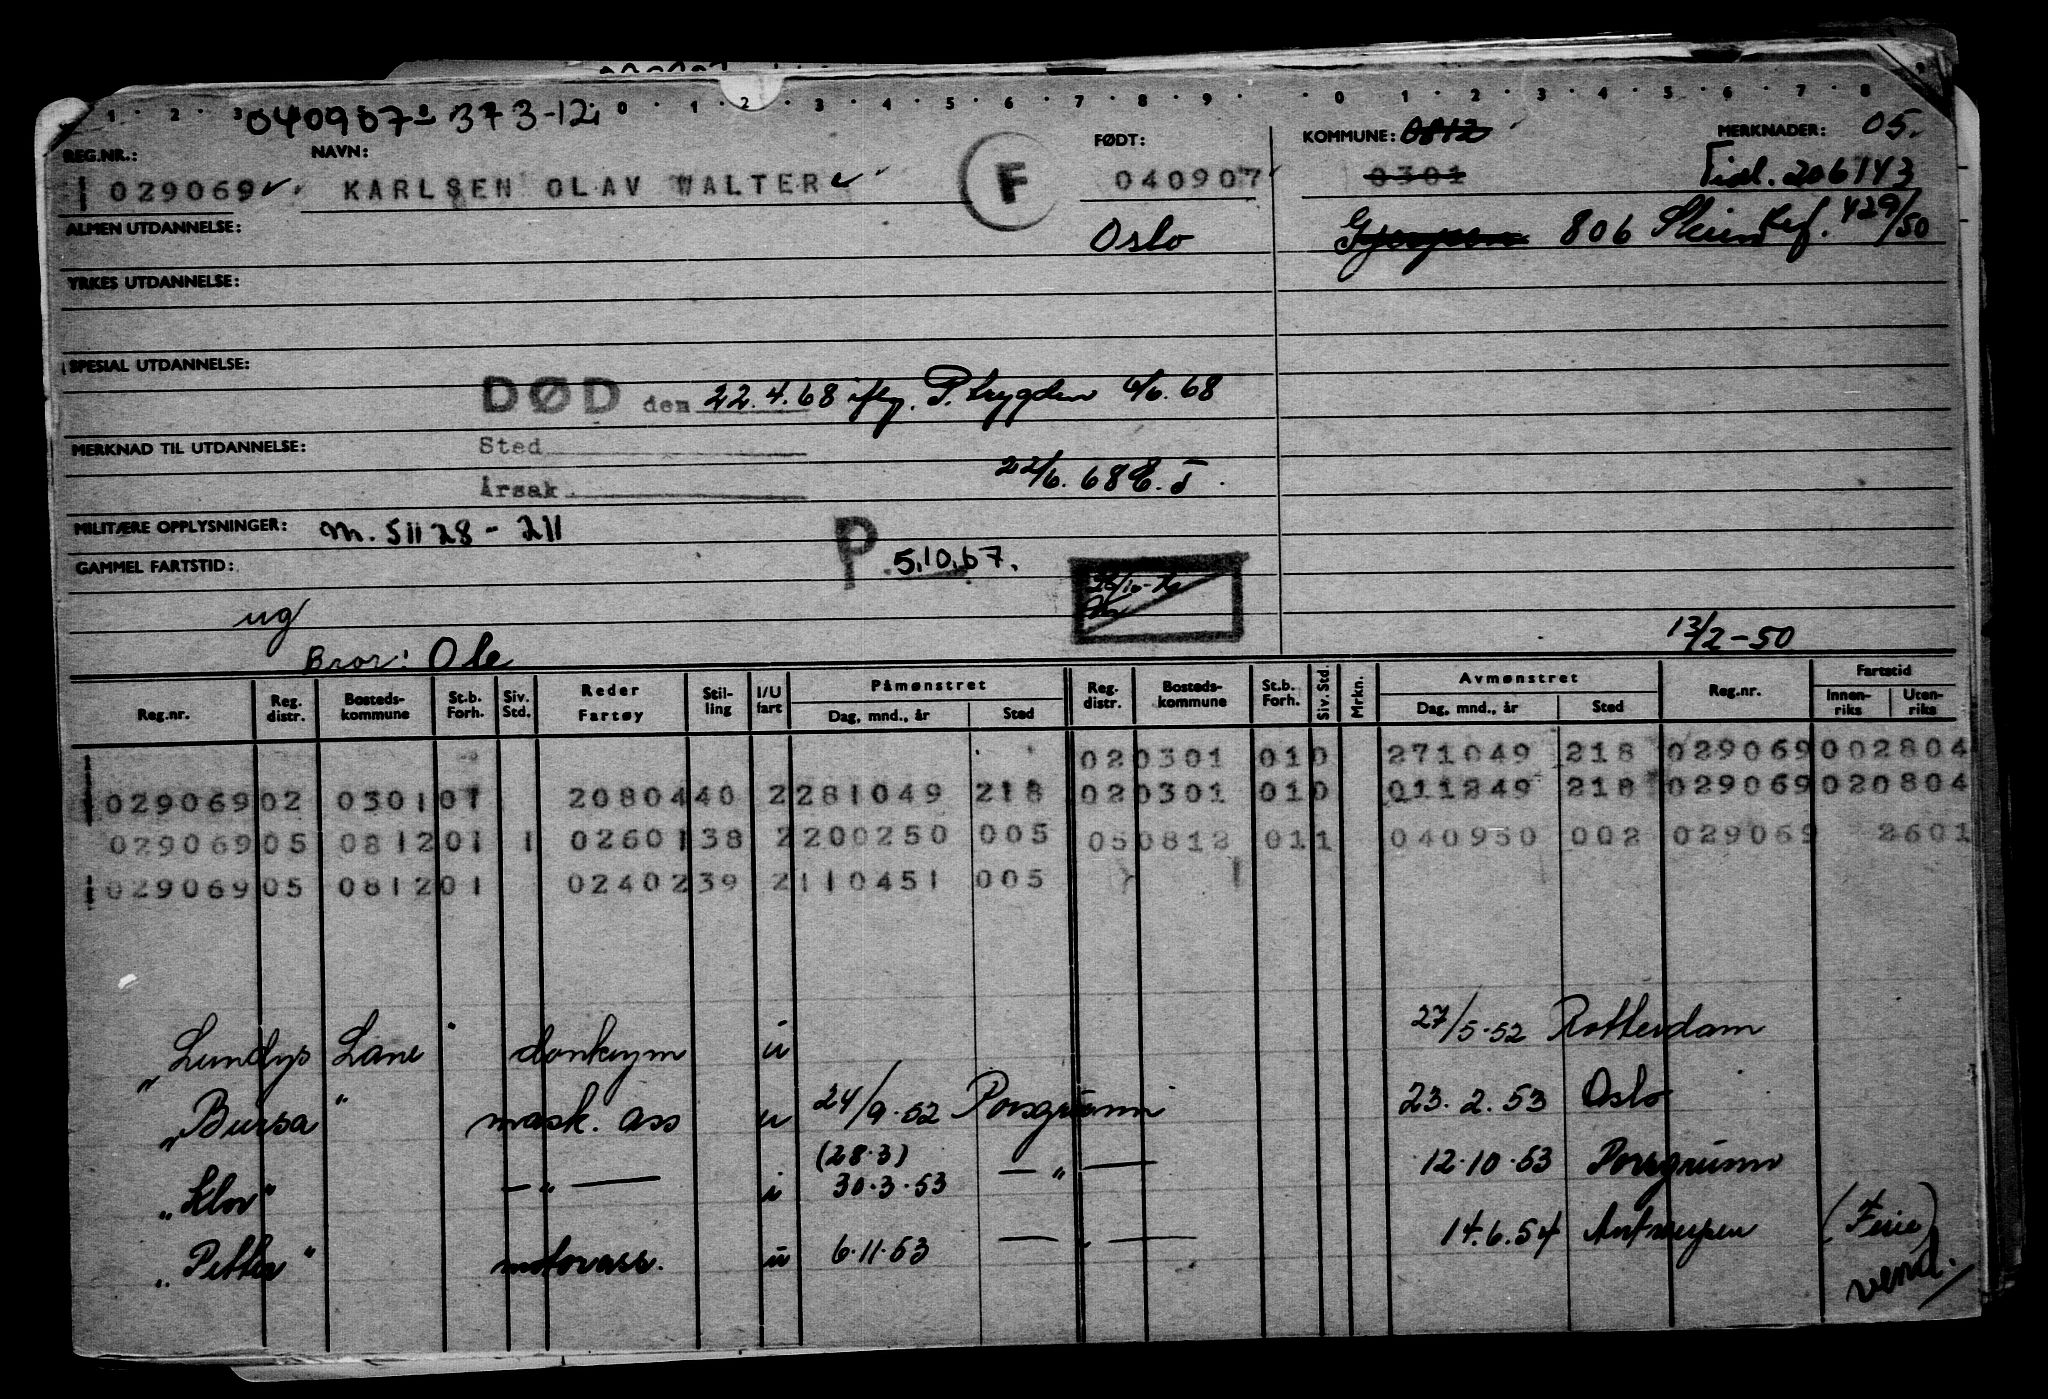 1 · 2 · 3 · 0 · 1 · 2 · 3 · 4 · 5 · 6 · 7 · 8 · 9 · · 0 · 1 · 2 · 3 · 4 · 5 · 6 · 7 · 8 9
040907 373-12
FØDT: KOMMUNE: 0812 MERKNADER: 05.
REG.NR.: NAVN:
029069 KARLSEN OLAV WALTER F 040907 0301 Tidl. 206143
ALMEN UTDANNELSE: Oslo 806 Skien Ref. 429/50
YRKES UTDANNELSE:
SPESIAL UTDANNELSE:
DØD den 22.4.68 iflg. P.trygden 6/6.68
MERKNAD TIL UTDANNELSE: Sted
22/6.68 E.T.
Årsak
MILITÆRE OPPLYSNINGER: m. 51128-211
P 5.10.67.
GAMMEL FARTSTID:
ug
13/2-50
Bror: Ole
Reg.nr. Reg. distr. Bosteds-kommune St.b. Forh. Siv. Std. Reder Fartøy Stil-ling I/U fart Påmønstret Dag, mnd., år Sted Reg. distr. Bosteds-kommune St.b. Forh. Siv. Std. Mrkn. Avmønstret Dag, mnd., år Sted Reg.nr. Fartstid Innen-riks Uten-riks
02 0301 01 0 271049 218 029069 002804
029069 02 0301 01 20804 40 2 281049 218 02 0301 01 0 011249 218 029069 020804
029069 05 0812 01 1 02601 38 2 200250 005 05 0812 01 1 040950 002 029069 2601
029069 05 0812 01 02402 39 2 110451 005
"Lundys Lane" donkeym u 27/5-52 Rotterdam
"Bursa" mask. ass u 24/9-52 Porsgrunn 23.2.53 Oslo
(28.3)
"Klov" — " — i 30.3.53 — " — 12.10.53 Porsgrunn
"Petter" motorass. u 6.11.53 — " — 14.6.54 Antwerpen (Ferie)
vend.